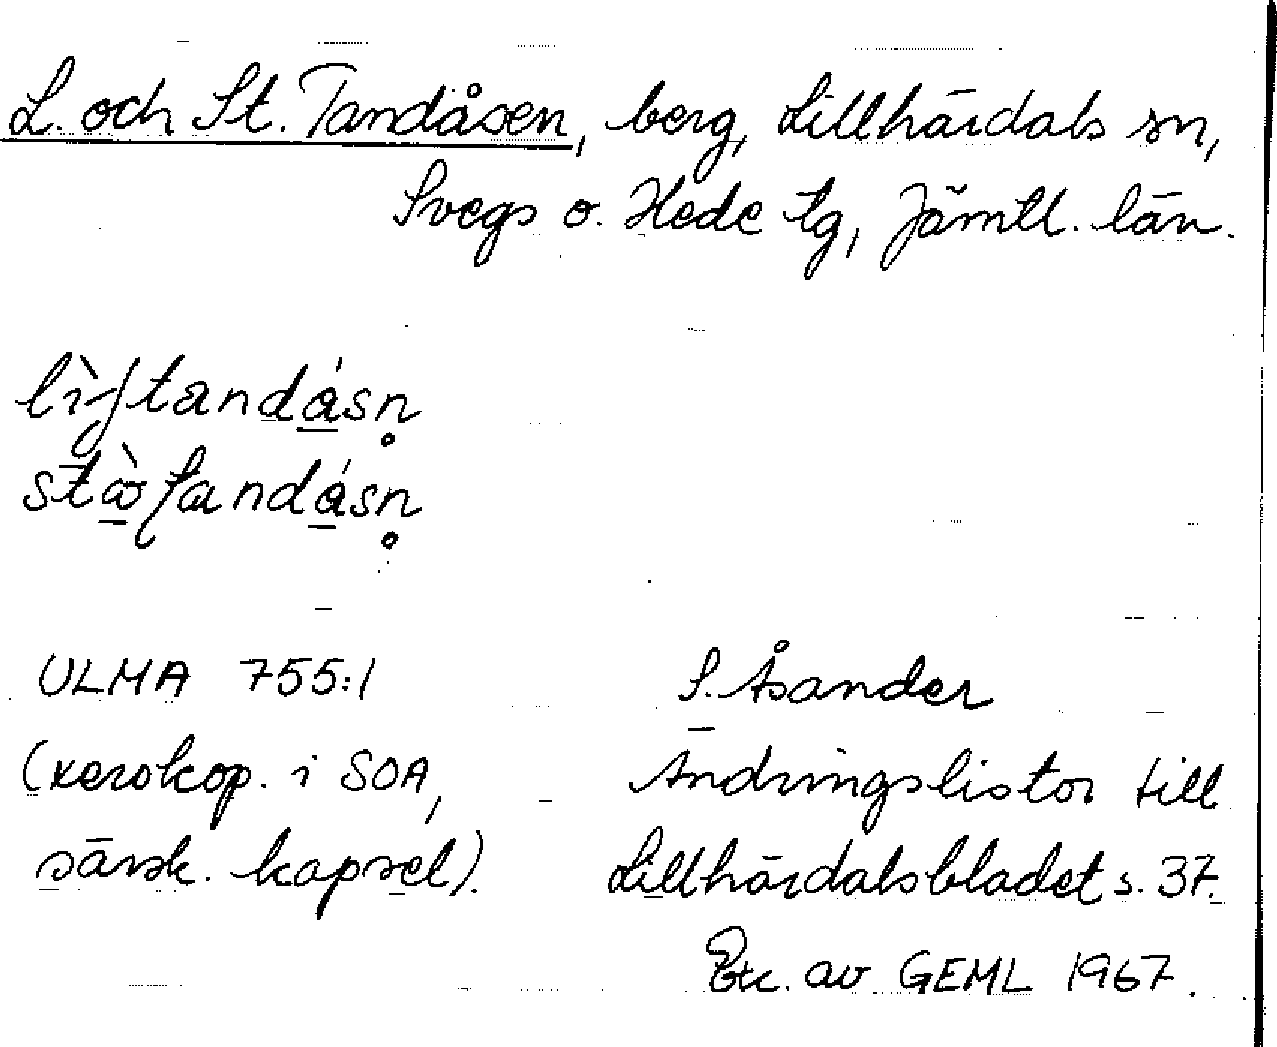 L. och St. Tandåsen, berg, Lillhärdals sn,
Svegs o. Hede tg, Jämtl. län.
stɷ̀ʃtandásn̥
ULMA 755:1
(xerokop. i SOA,
särsk. kapsel).
S. Åsander
Ändringslistor till
Lillhärdalsbladet s. 37.
Exc. av GEML 1967.